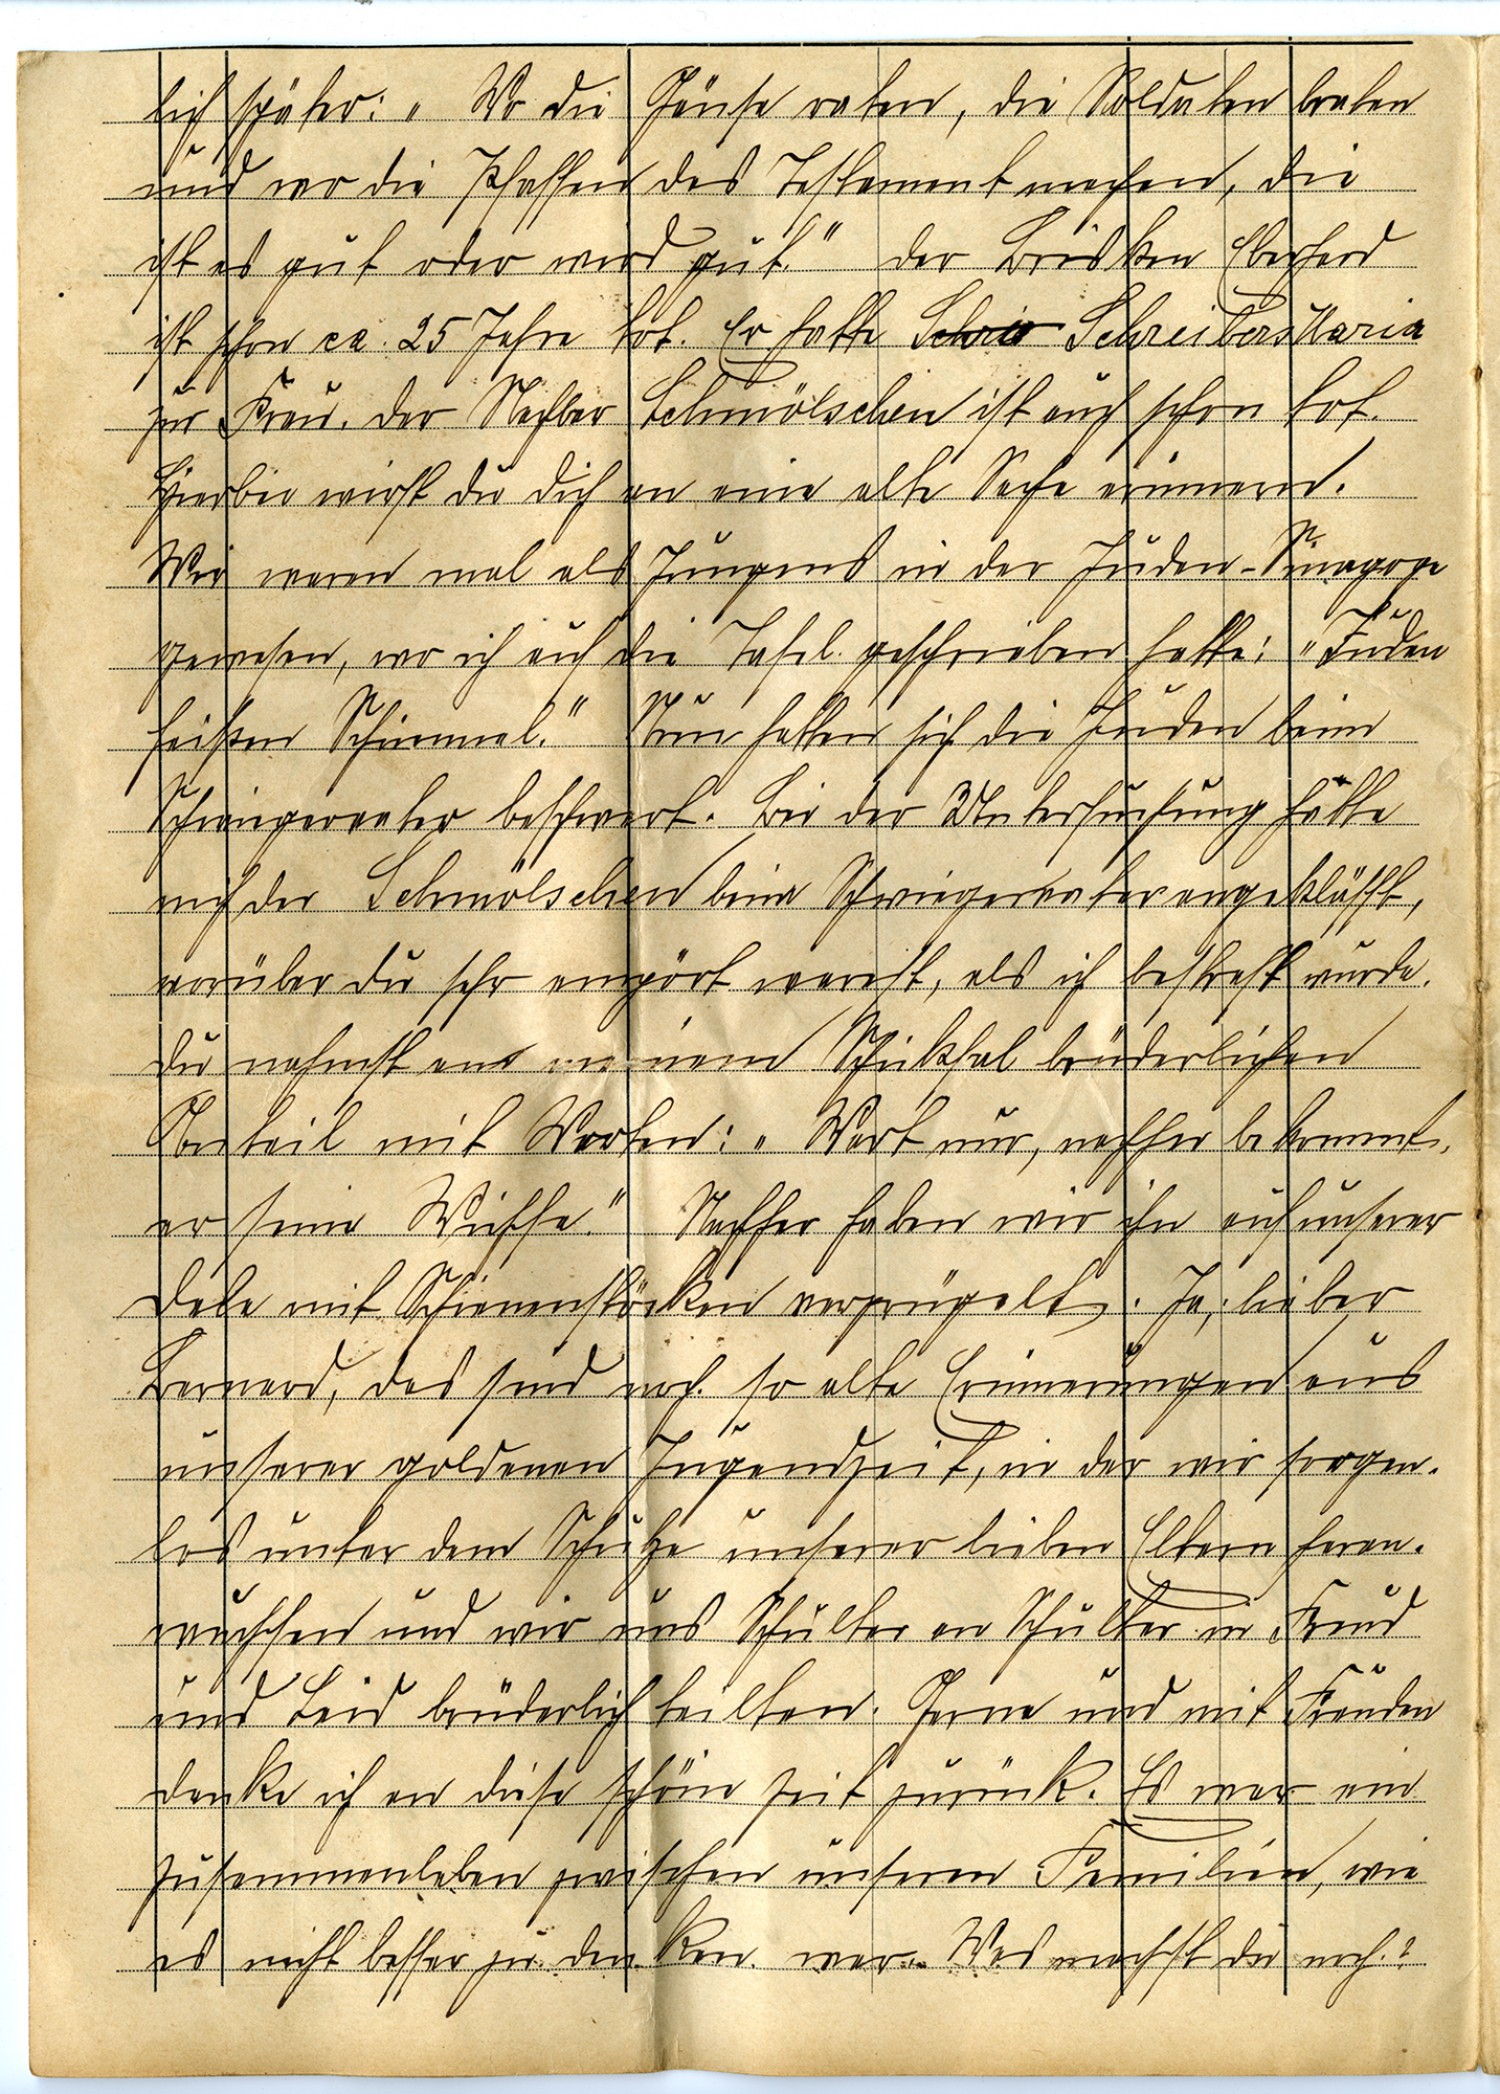 lich später: „Wo die Gänse raten, die Soldaten braten
und wo die Pfaffen das Testament machen, die
ist es gut oder wird gut." Der Brüsken Eberhard
ist schon ca. 25 Jahre tot. Er hatte Schrei Schreibers Maria
zur Frau. Der Nachbar Schmölschen ist auch schon tot.
Hierbei wirst du dich an eine alte Sache erinnern.
Wir waren mal als Jungens in der Juden-Sinagoge
gewesen, wo ich auf die Tafel geschrieben hatte: „Juden
heißen Schimmel." Nun hatten sich die Juden beim
Schwiegervater beschwert. Bei der Untersuchung hatte
mich der Schmölschen beim Schwiegervater angekläfft,
worüber du sehr empört warest, als ich bestraft wurde.
Du nahmst an meinem Schicksal brüderlichen
Anteil mit Worten: „Wart nur, nachher bekommt
er seine Wichse." Nachher haben wir ihn auf unserer
Dele mit Schienenstöcken verprügelt. Ja, lieber
Bernard, das sind noch so alte Erinnerungen aus
unserer goldenen Jugendzeit, in der wir sorgen-
los unter dem Schutze unserer lieben Eltern heran-
wuchsen und wir uns Schulter an Schulter in Freud
und Leid brüderlich teilten. Gerne und mit Freuden
denke ich an diese schöne Zeit zurück. Es war ein
Zusammenleben zwischen unseren Familien, wie
es nicht besser zu denken war. Was machst du noch?